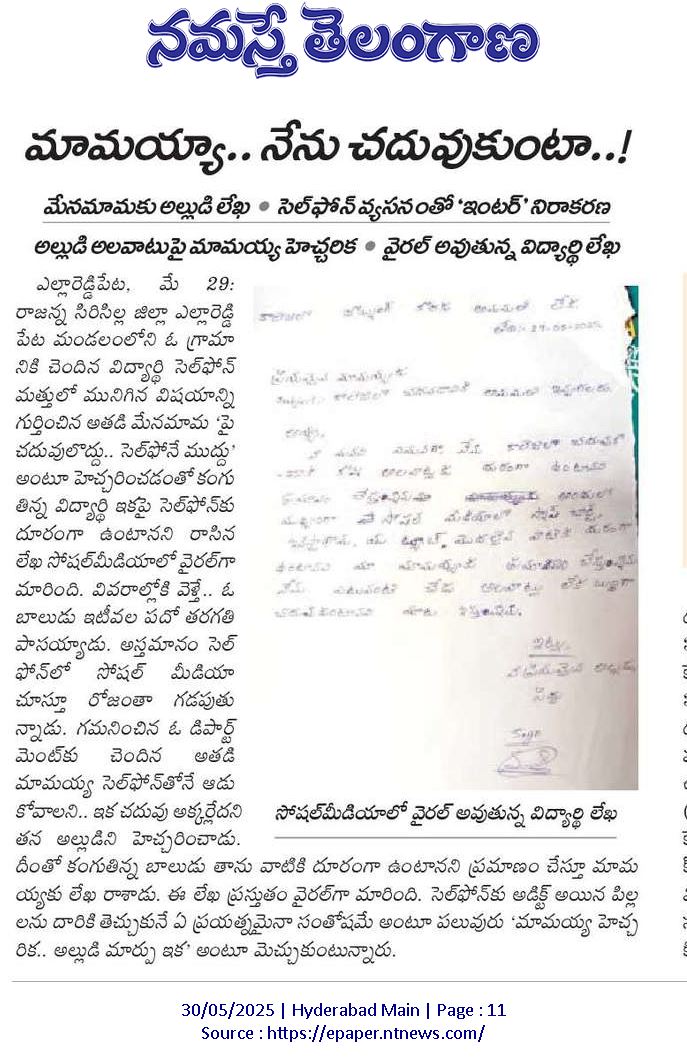 నమస్తే తెలంగాణ
మామయ్యా.. నేను చదువుకుంటా..!
మేనమామకు అల్లుడి లేఖ • సెల్‌ఫోన్ వ్యసనంతో ‘ఇంటర్’ నిరాకరణ
అల్లుడి అలవాటుపై మామయ్య హెచ్చరిక • వైరల్ అవుతున్న విద్యార్థి లేఖ
ఎల్లారెడ్డిపేట, మే 29:
రాజన్న సిరిసిల్ల జిల్లా ఎల్లారెడ్డి
పేట మండలంలోని ఓ గ్రామా
నికి చెందిన విద్యార్థి సెల్‌ఫోన్
మత్తులో మునిగిన విషయాన్ని
గుర్తించిన అతడి మేనమామ ‘పై
చదువులొద్దు.. సెల్‌ఫోనే ముద్దు’
అంటూ హెచ్చరించడంతో కంగు
తిన్న విద్యార్థి ఇకపై సెల్‌ఫోన్‌కు
దూరంగా ఉంటానని రాసిన
లేఖ సోషల్‌మీడియాలో వైరల్‌గా
మారింది. వివరాల్లోకి వెళ్తే.. ఓ
బాలుడు ఇటీవల పదో తరగతి
పాసయ్యాడు. అస్తమానం సెల్
ఫోన్‌లో సోషల్ మీడియా
చూస్తూ రోజంతా గడపుతు
న్నాడు. గమనించిన ఓ డిపార్ట్
మెంట్‌కు చెందిన అతడి
మామయ్య సెల్‌ఫోన్‌తోనే ఆడు
కోవాలని.. ఇక చదువు అక్కర్లేదని
తన అల్లుడిని హెచ్చరించాడు.
దీంతో కంగుతిన్న బాలుడు తాను వాటికి దూరంగా ఉంటానని ప్రమాణం చేస్తూ మామ
య్యకు లేఖ రాశాడు. ఈ లేఖ ప్రస్తుతం వైరల్‌గా మారింది. సెల్‌ఫోన్‌కు అడిక్ట్ అయిన పిల్ల
లను దారికి తెచ్చుకునే ఏ ప్రయత్నమైనా సంతోషమే అంటూ పలువురు ‘మామయ్య హెచ్చ
రిక.. అల్లుడి మార్పు ఇక’ అంటూ మెచ్చుకుంటున్నారు.
కాలేజీలో కొరకు లేఖ
తేది:- 29-05-2025
ప్రియమైన మామయ్యకు
కాలేజీలో
దూరంగా ఉంటానని
సోషల్ మీడియాలో
దూరంగా
ఉంటానని మా మామయ్యకు
చెడు అలవాట్లు లేక బుద్ధిగా
చదువుకుంటానని మాట ఇస్తున్నాను.
ఇట్లు
ప్రియమైన అల్లుడు
Sign
సోషల్‌మీడియాలో వైరల్ అవుతున్న విద్యార్థి లేఖ
30/05/2025 | Hyderabad Main | Page : 11
Source : https://epaper.ntnews.com/